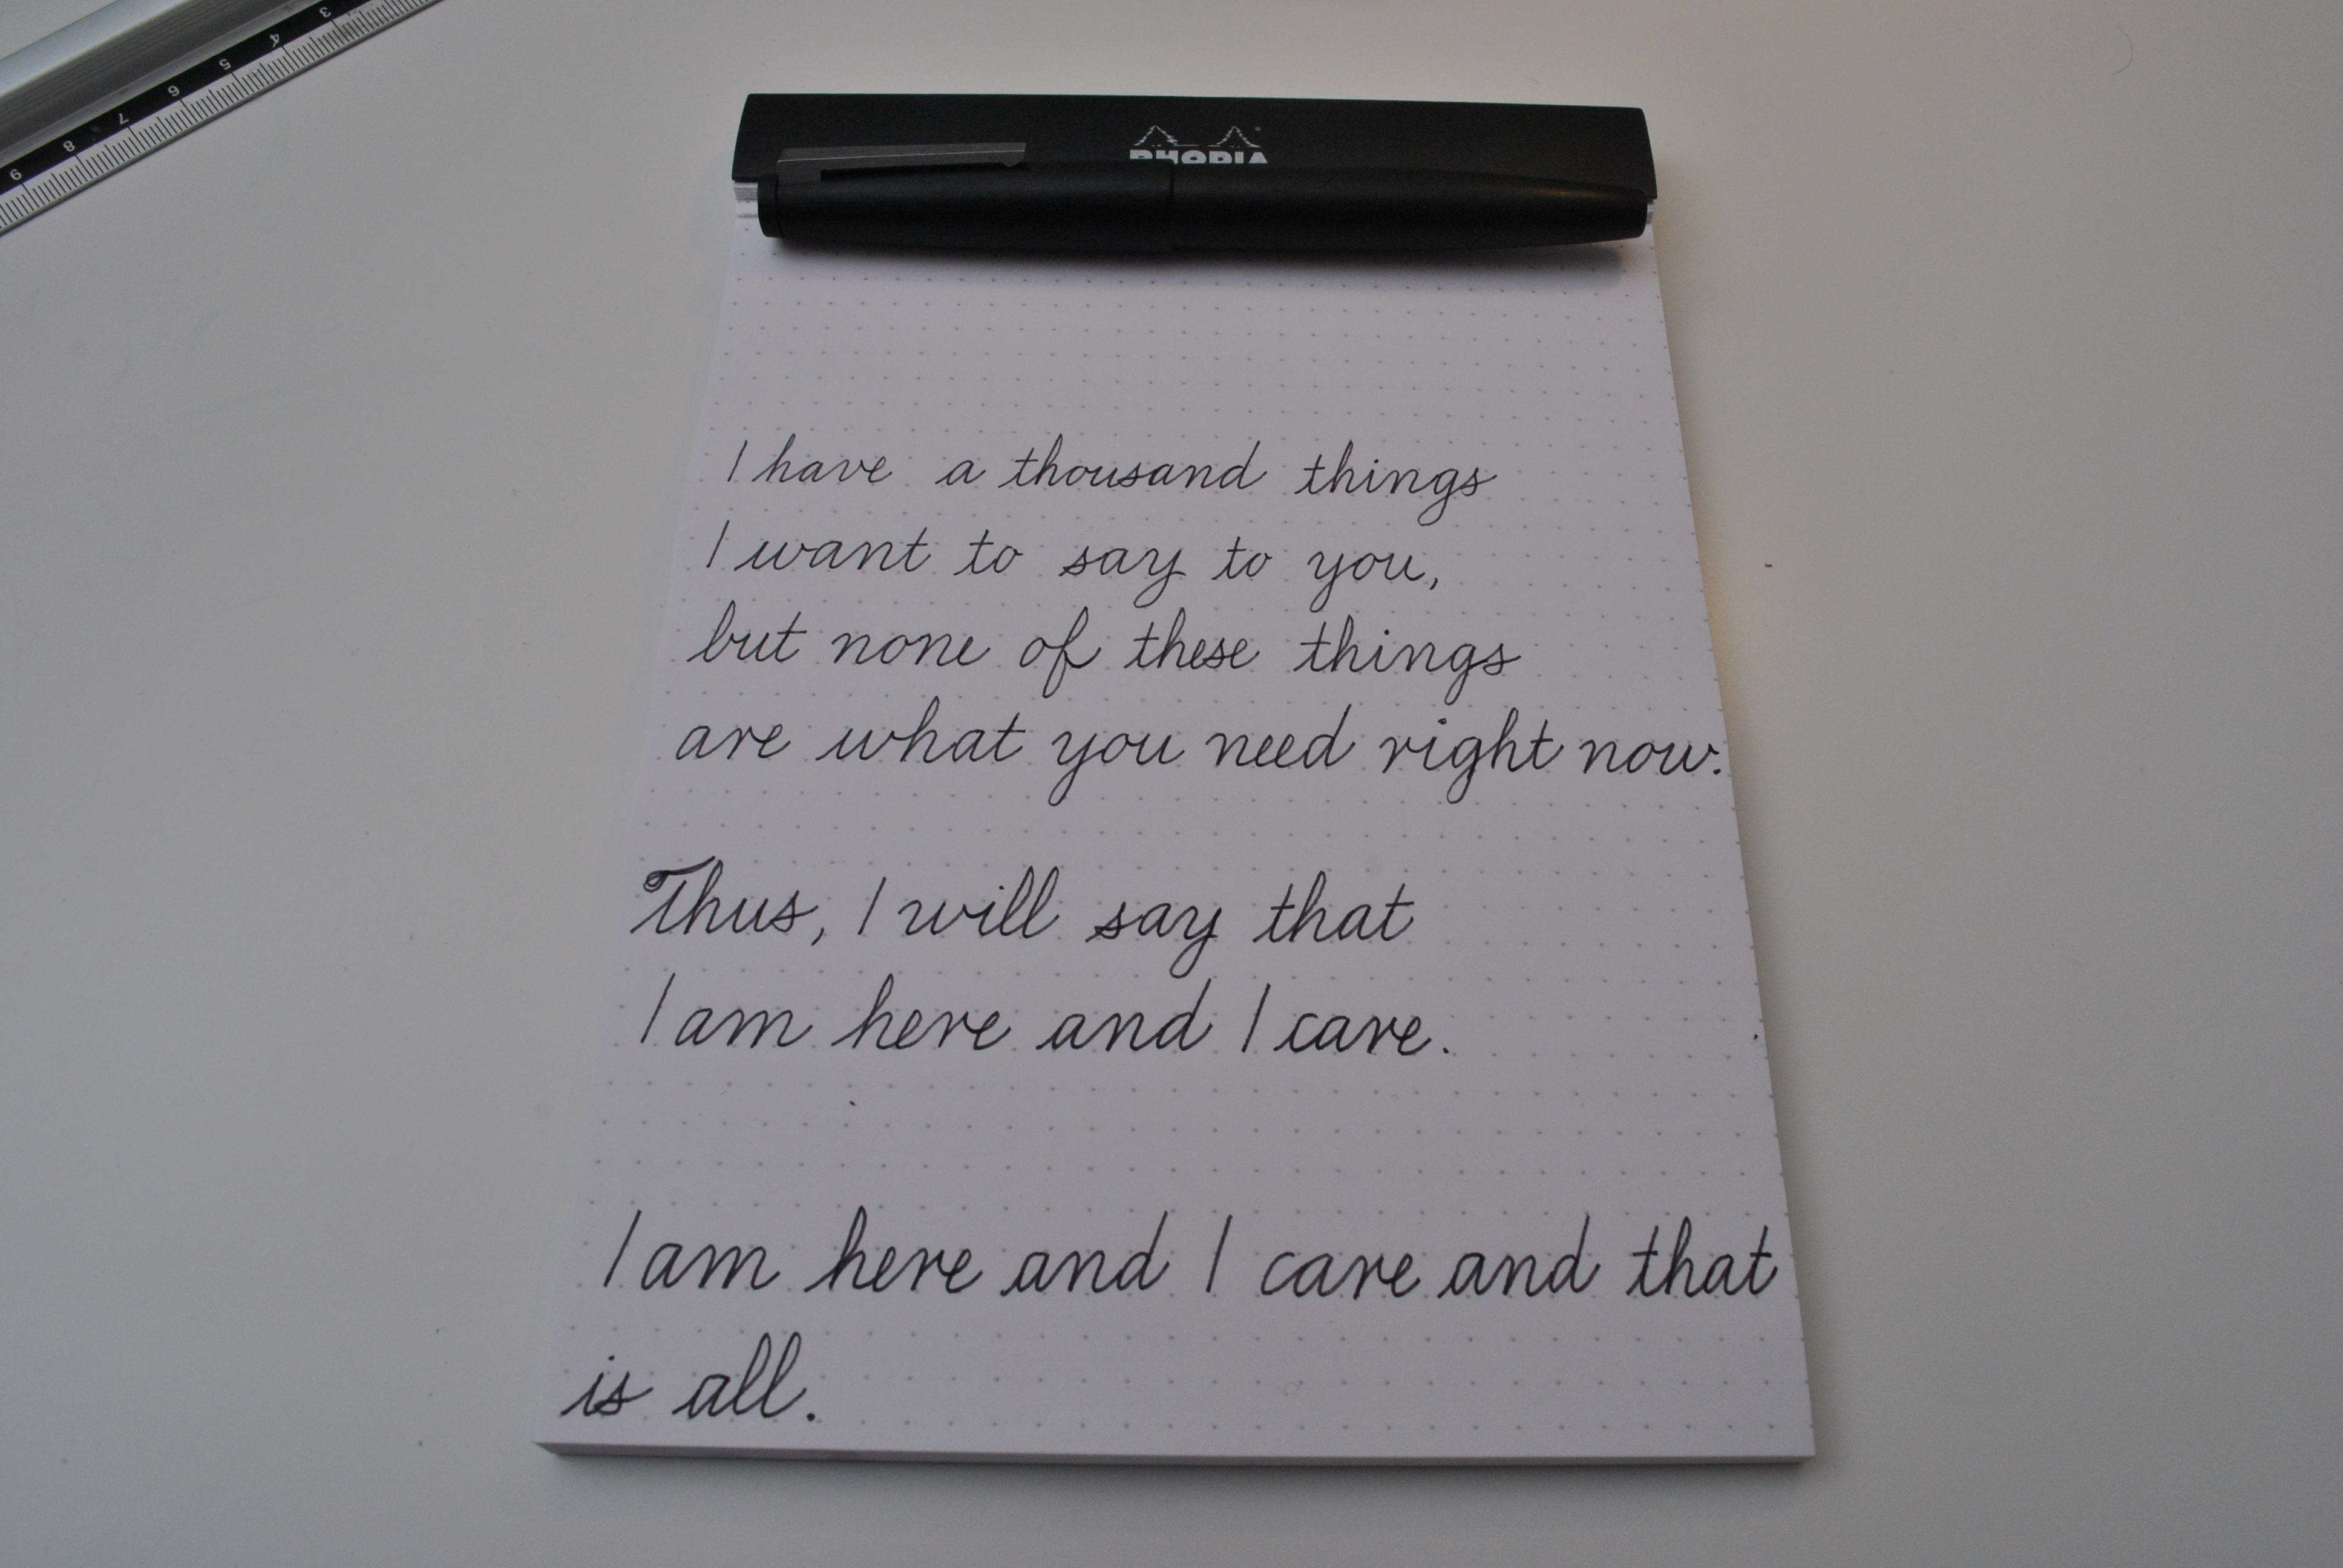 3
4
5
6
7
8
9
RHODIA
I have a thousand things
I want to say to you,
but none of these things
are what you need right now.
Thus, I will say that
I am here and I care.
I am here and I care and that
is all.